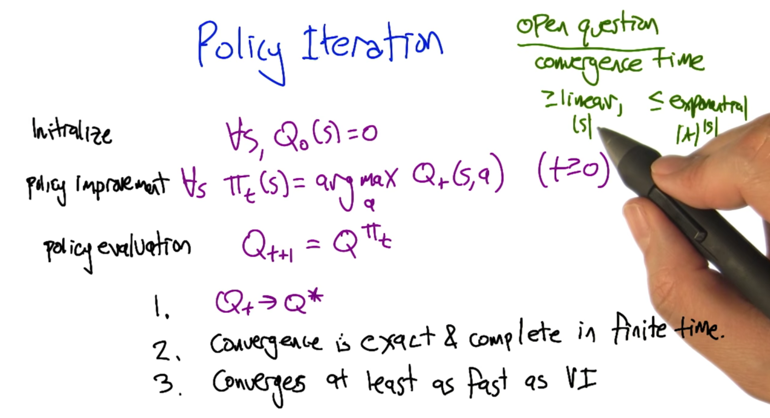 Policy Iteration
open question
convergence time
≥ linear, ≤ exponential
|S| |A|^|S|
Initialize ∀s, Q₀(s)=0
policy improvement ∀s π_t(s) = argmax_a Q_t(s,a) (t≥0)
policy evaluation Q_{t+1} = Q^{π_t}
1. Q_t → Q*
2. Convergence is exact & complete in finite time.
3. Converges at least as fast as VI